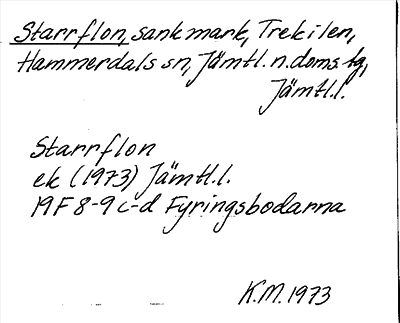 Starrflon, sank mark, Trekilen,
Hammerdals sn, Jämtl. n. doms. tg,
Jämtl.l.
Starrflon
ek (1973) Jämtl.l.
19F 8-9 c-d Fyringsbodarna
K.M. 1973